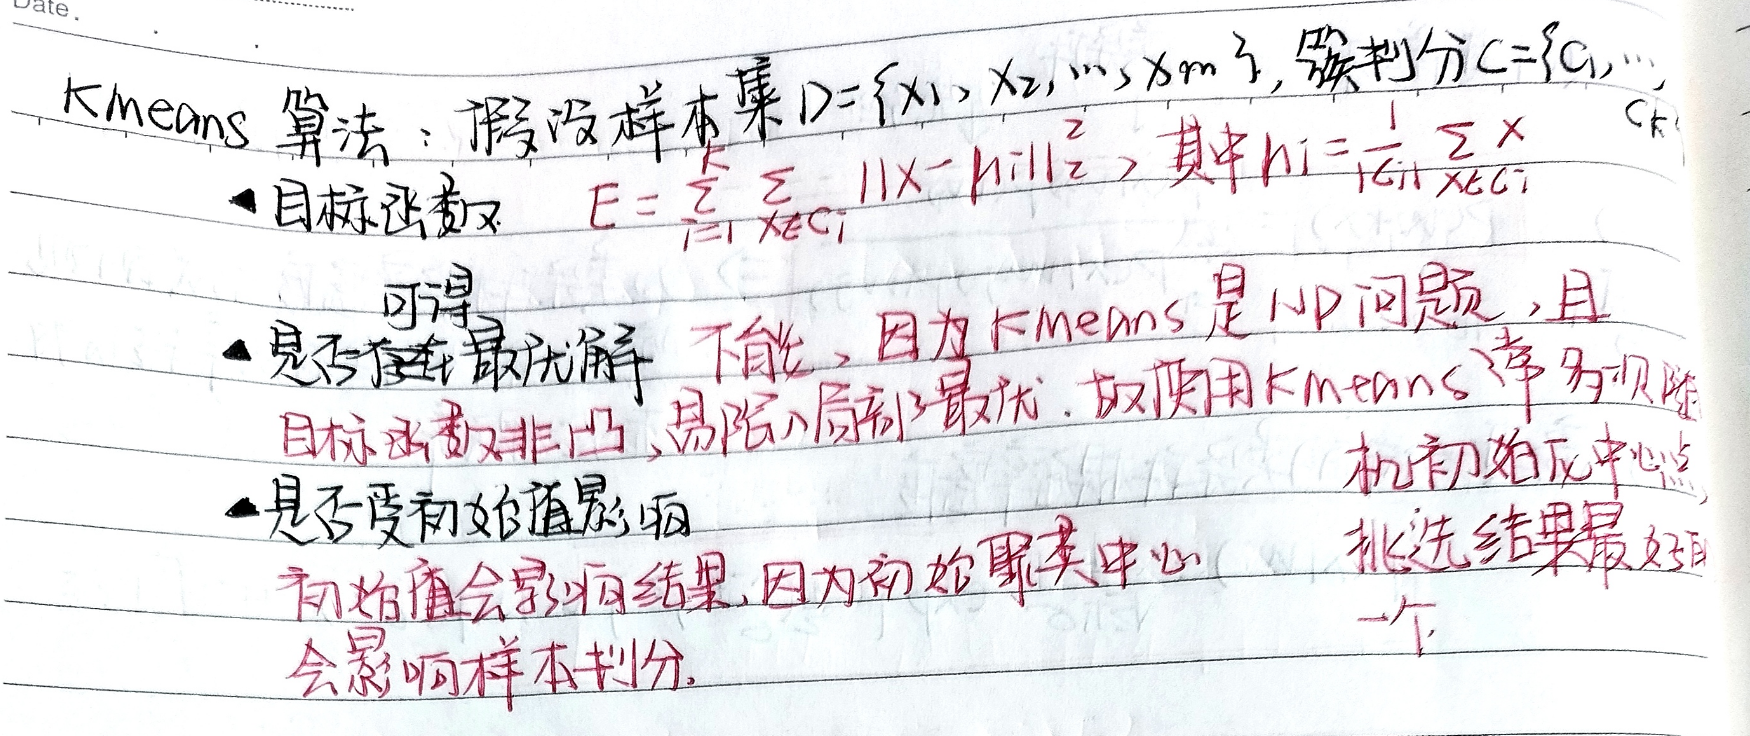 Date.
Kmeans 算法：假设样本集D={x1、x2,…,xm},簇判分C={C1,…,
Ck}
目标函数 E=∑_{i=1}^{k}∑_{x∈Ci}||x-μi||_2^2，其中μi=1/|Ci|∑_{x∈Ci}x
可得
是否最优解 不能，因为Kmeans 是NP问题，且
目标函数非凸、易陷入局部最优.故使用Kmeans 常多次随
机初始化中心点
是否受初始值影响
挑选结果最好的
初始值会影响结果,因为初始聚类中心
一个.
会影响样本判分.